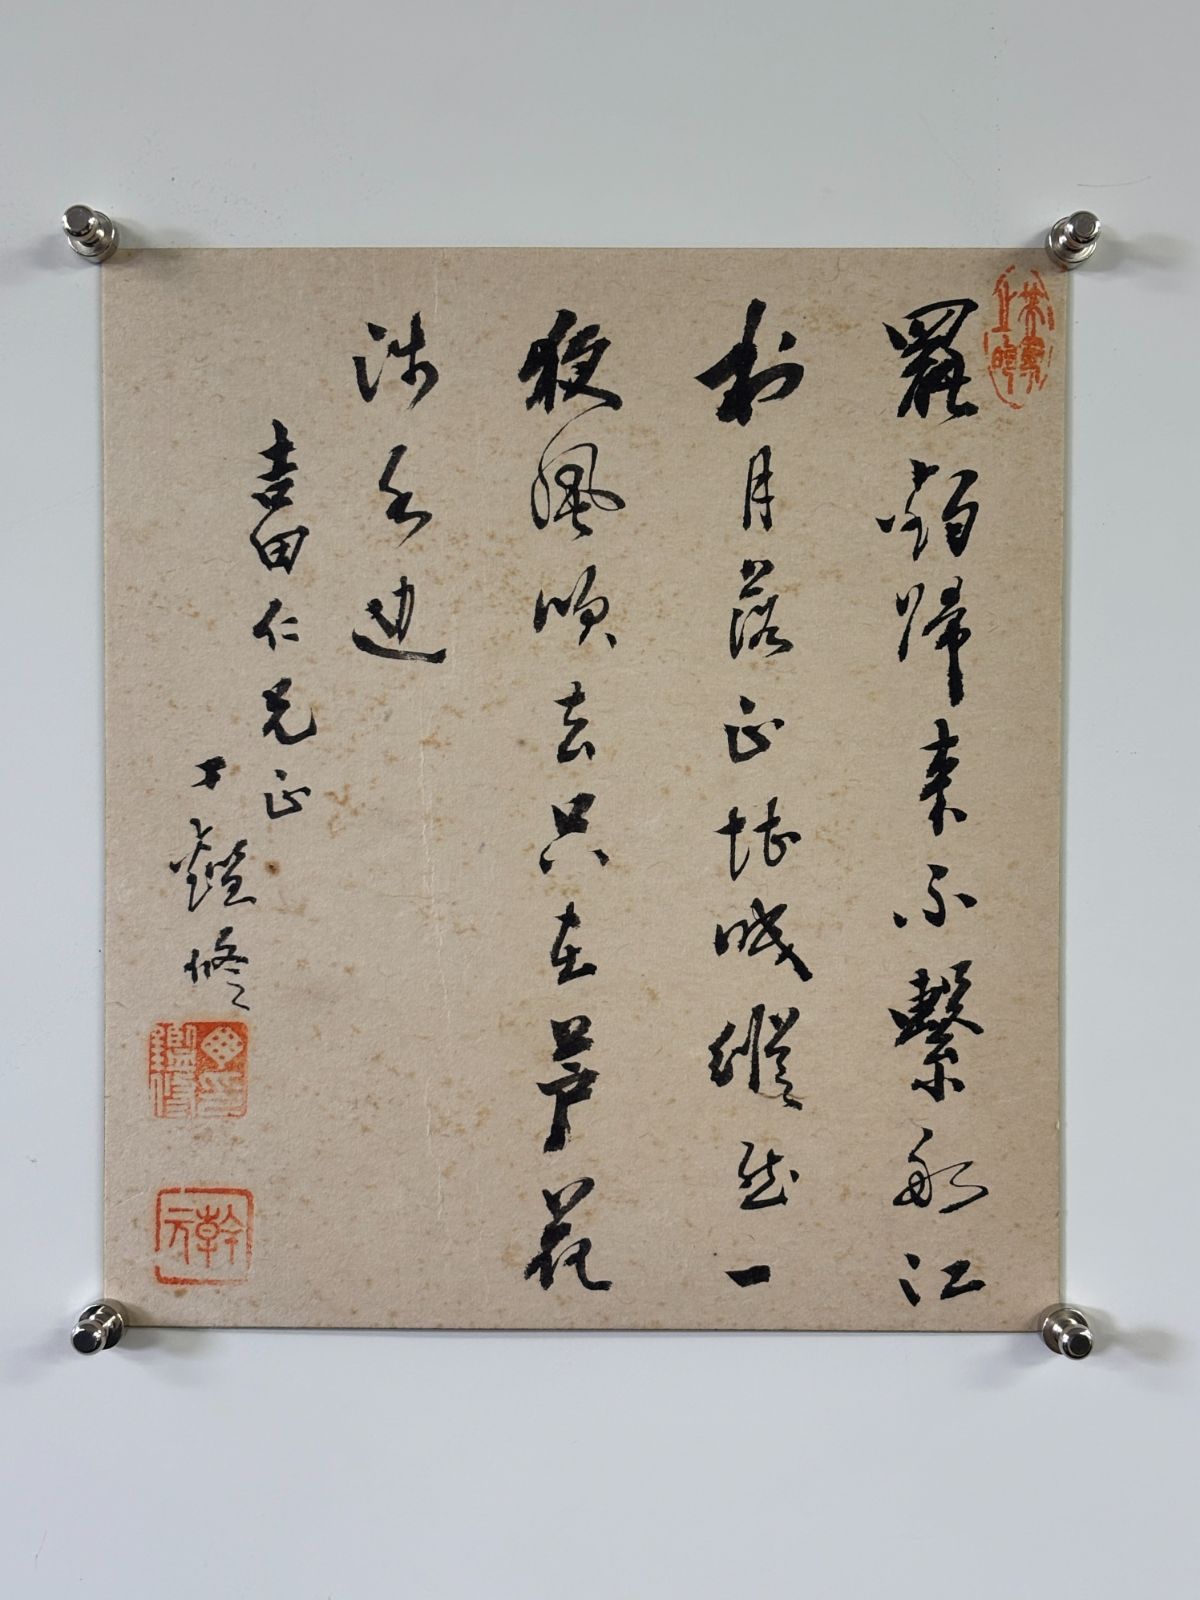 罷釣歸來不繫船江
村月落正堪眠縱然一
夜風吹去只在芦花
淺水边
吉田仁兄正
丁鑑修